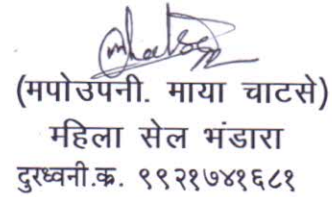 (मपोउपनी. माया चाटसे)
महिला सेल भंडारा
दुरध्वनी.क्र. ९९२१७४१६८१